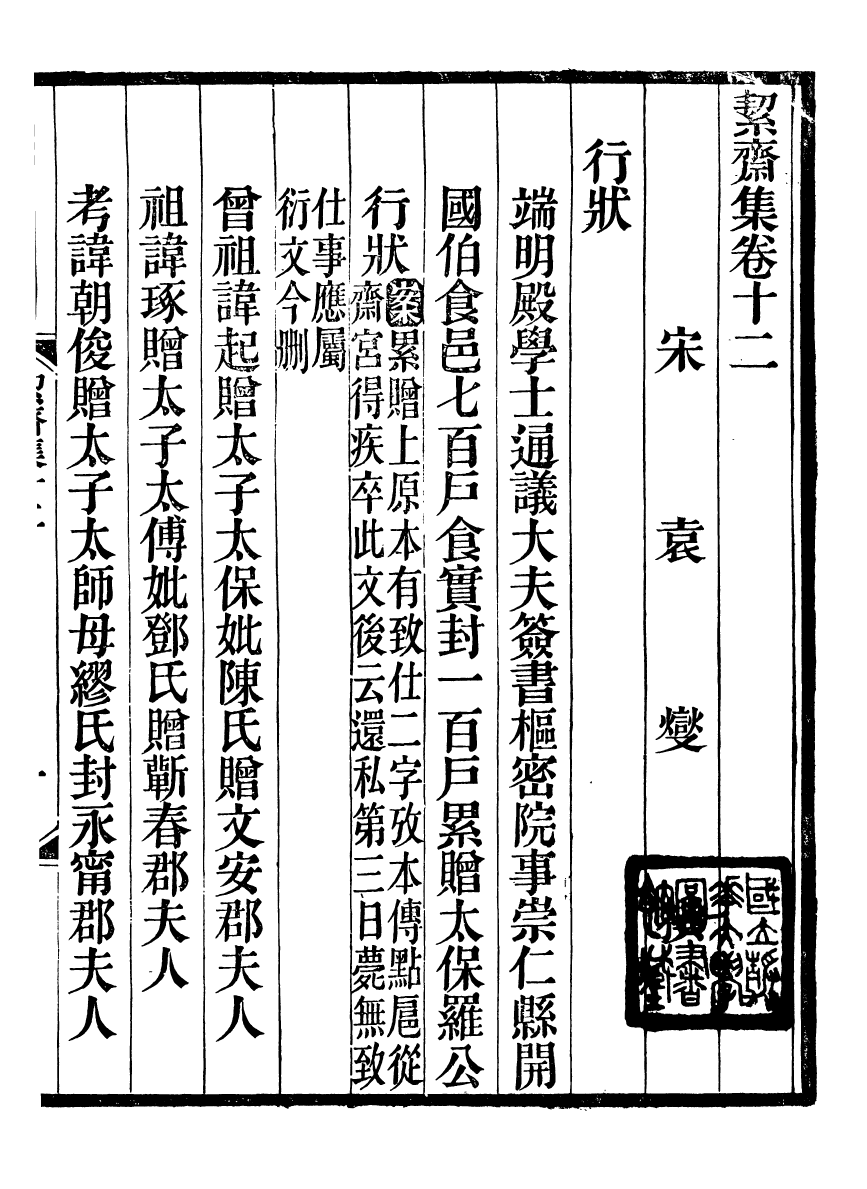 絜齋集卷十二
宋 袁 燮
行狀
端明殿學士通議大夫簽書樞密院事崇仁縣開
國伯食邑七百戶食實封一百戶累贈太保羅公
行狀
案累贈上原本有致仕二字攷本傳點扈從
齋宮得疾卒此文後云還私第三日薨無致
仕事應屬
衍文今刪
曾祖諱起贈太子太保妣陳氏贈文安郡夫人
祖諱琢贈太子太傅妣鄧氏贈蘄春郡夫人
考諱朝俊贈太子太師母繆氏封永甯郡夫人